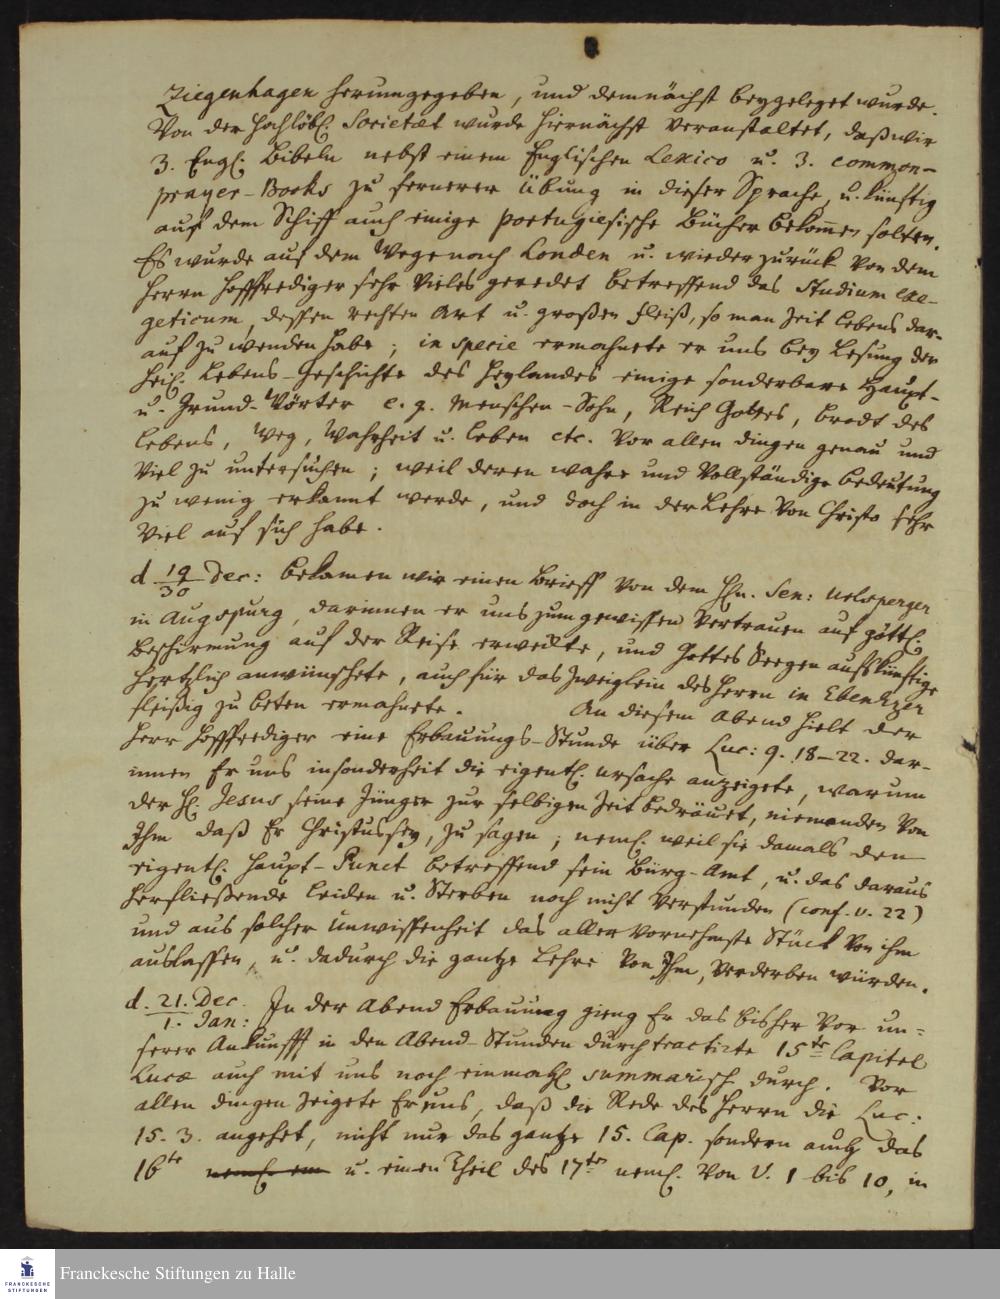 Ziegenhagen herumgegeben, und demnächst beygeleget wurde.
Von der Hochlöbl. Societaet wurde hiernächst veranstaltet, daß wir
3. Engl. Bibeln nebst einem Englischen Lexico u. 3. common-
prayer-Books zu fernerer Übung in dieser Sprache, u. künftig
auf dem Schiff auch einige portugiesische Bücher bekom̄en solten.
Es wurde auf dem Wege nach Londen u. wieder zurück von dem
Herrn Hoffprediger sehr vieles geredet betreffend das Studium exe-
geticum, dessen rechten Art u. großen Fleiß, so man Zeit Lebens dar-
auf zu wenden habe; in specie ermahnete er uns bey Lesung der
heil. Lebens-Geschichte des Heylandes einige sonderbare Haupt-
u. Grund-Wörter e. g. Menschen-Sohn, Reich Gottes, Brodt des
Lebens, Weg, Wahrheit u. Leben etc. vor allen dingen genau und
viel zu untersuchen; weil deren wahre und vollständige Bedeutung
zu wenig erkannt werde, und doch in der Lehre von Christo sehr
viel auf sich habe.
d 19/30 Dec: bekamen wir einen Brieff von dem Hn. Sen: Urlsperger
in Augspurg, darinnen er uns zum gewissen Vertrauen auf göttl.
Beschirmung auf der Reise erweckte, und Gottes Seegen aufs künftige
hertzlich anwünschete, auch für das Zweiglein des Herrn in Ebenezer
fleißig zu beten ermahnete. An diesem Abend hielt der
Herr Hoffprediger eine Erbauungs-Stunde über Luc: 9. 18-22. dar-
innen Er uns insonderheit die eigentl. Ursache anzeigete, warum
der H. Jesus seine Jünger zur selbigen Zeit bedräuet, niemanden von
Ihm daß Er Christus sey, zu sagen; neml. weil sie damals den
eigentl. Haupt-Punct betreffend sein Bürg-Amt, u. das daraus
herfließende Leiden u. Sterben noch nicht verstunden (conf. v. 22)
und aus solcher Unwissenheit das aller vornehmste Stück von ihm
auslassen, u. dadurch die gantze Lehre von Ihm, verderben würden.
d. 21. Dec./1. Jan: In der Abend Erbauung gieng Er das bisher vor un-
serer Ankunfft in den Abend-Stunden durchtractirte 15te Capitel
Lucæ auch mit uns noch einmahl summarisch durch. Vor
allen dingen zeigete Er uns, daß die Rede des Herrn die Luc:
15. 3. angehet, nicht nur das gantze 15. Cap. sondern auch das
16te neml. ein u. einen Theil des 17ten neml. von V. 1 bis 10, in
Franckesche Stiftungen zu Halle
FRANCKESCHE
STIFTUNGEN